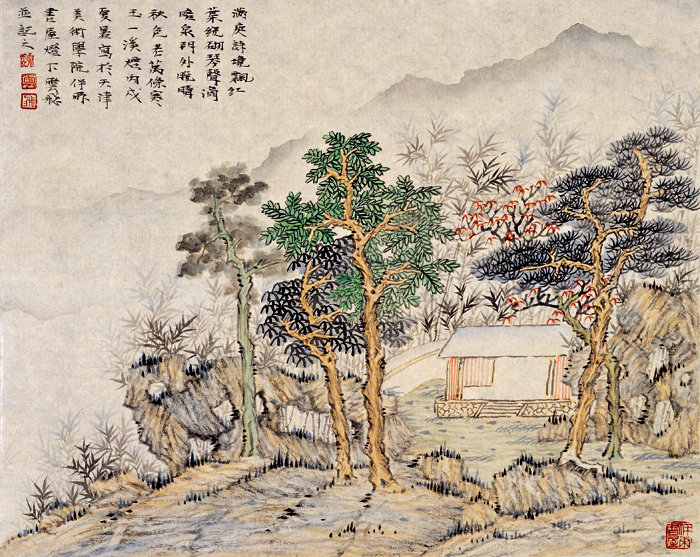 満庾詩境飄紅
葉繞砌琴聲滴
暗泉門外晚晴
秋色老萬條寒
玉一溪煙丙戌
夏暑寫於天津
美術學院伴霖
書屋燈下雲龍
並記之